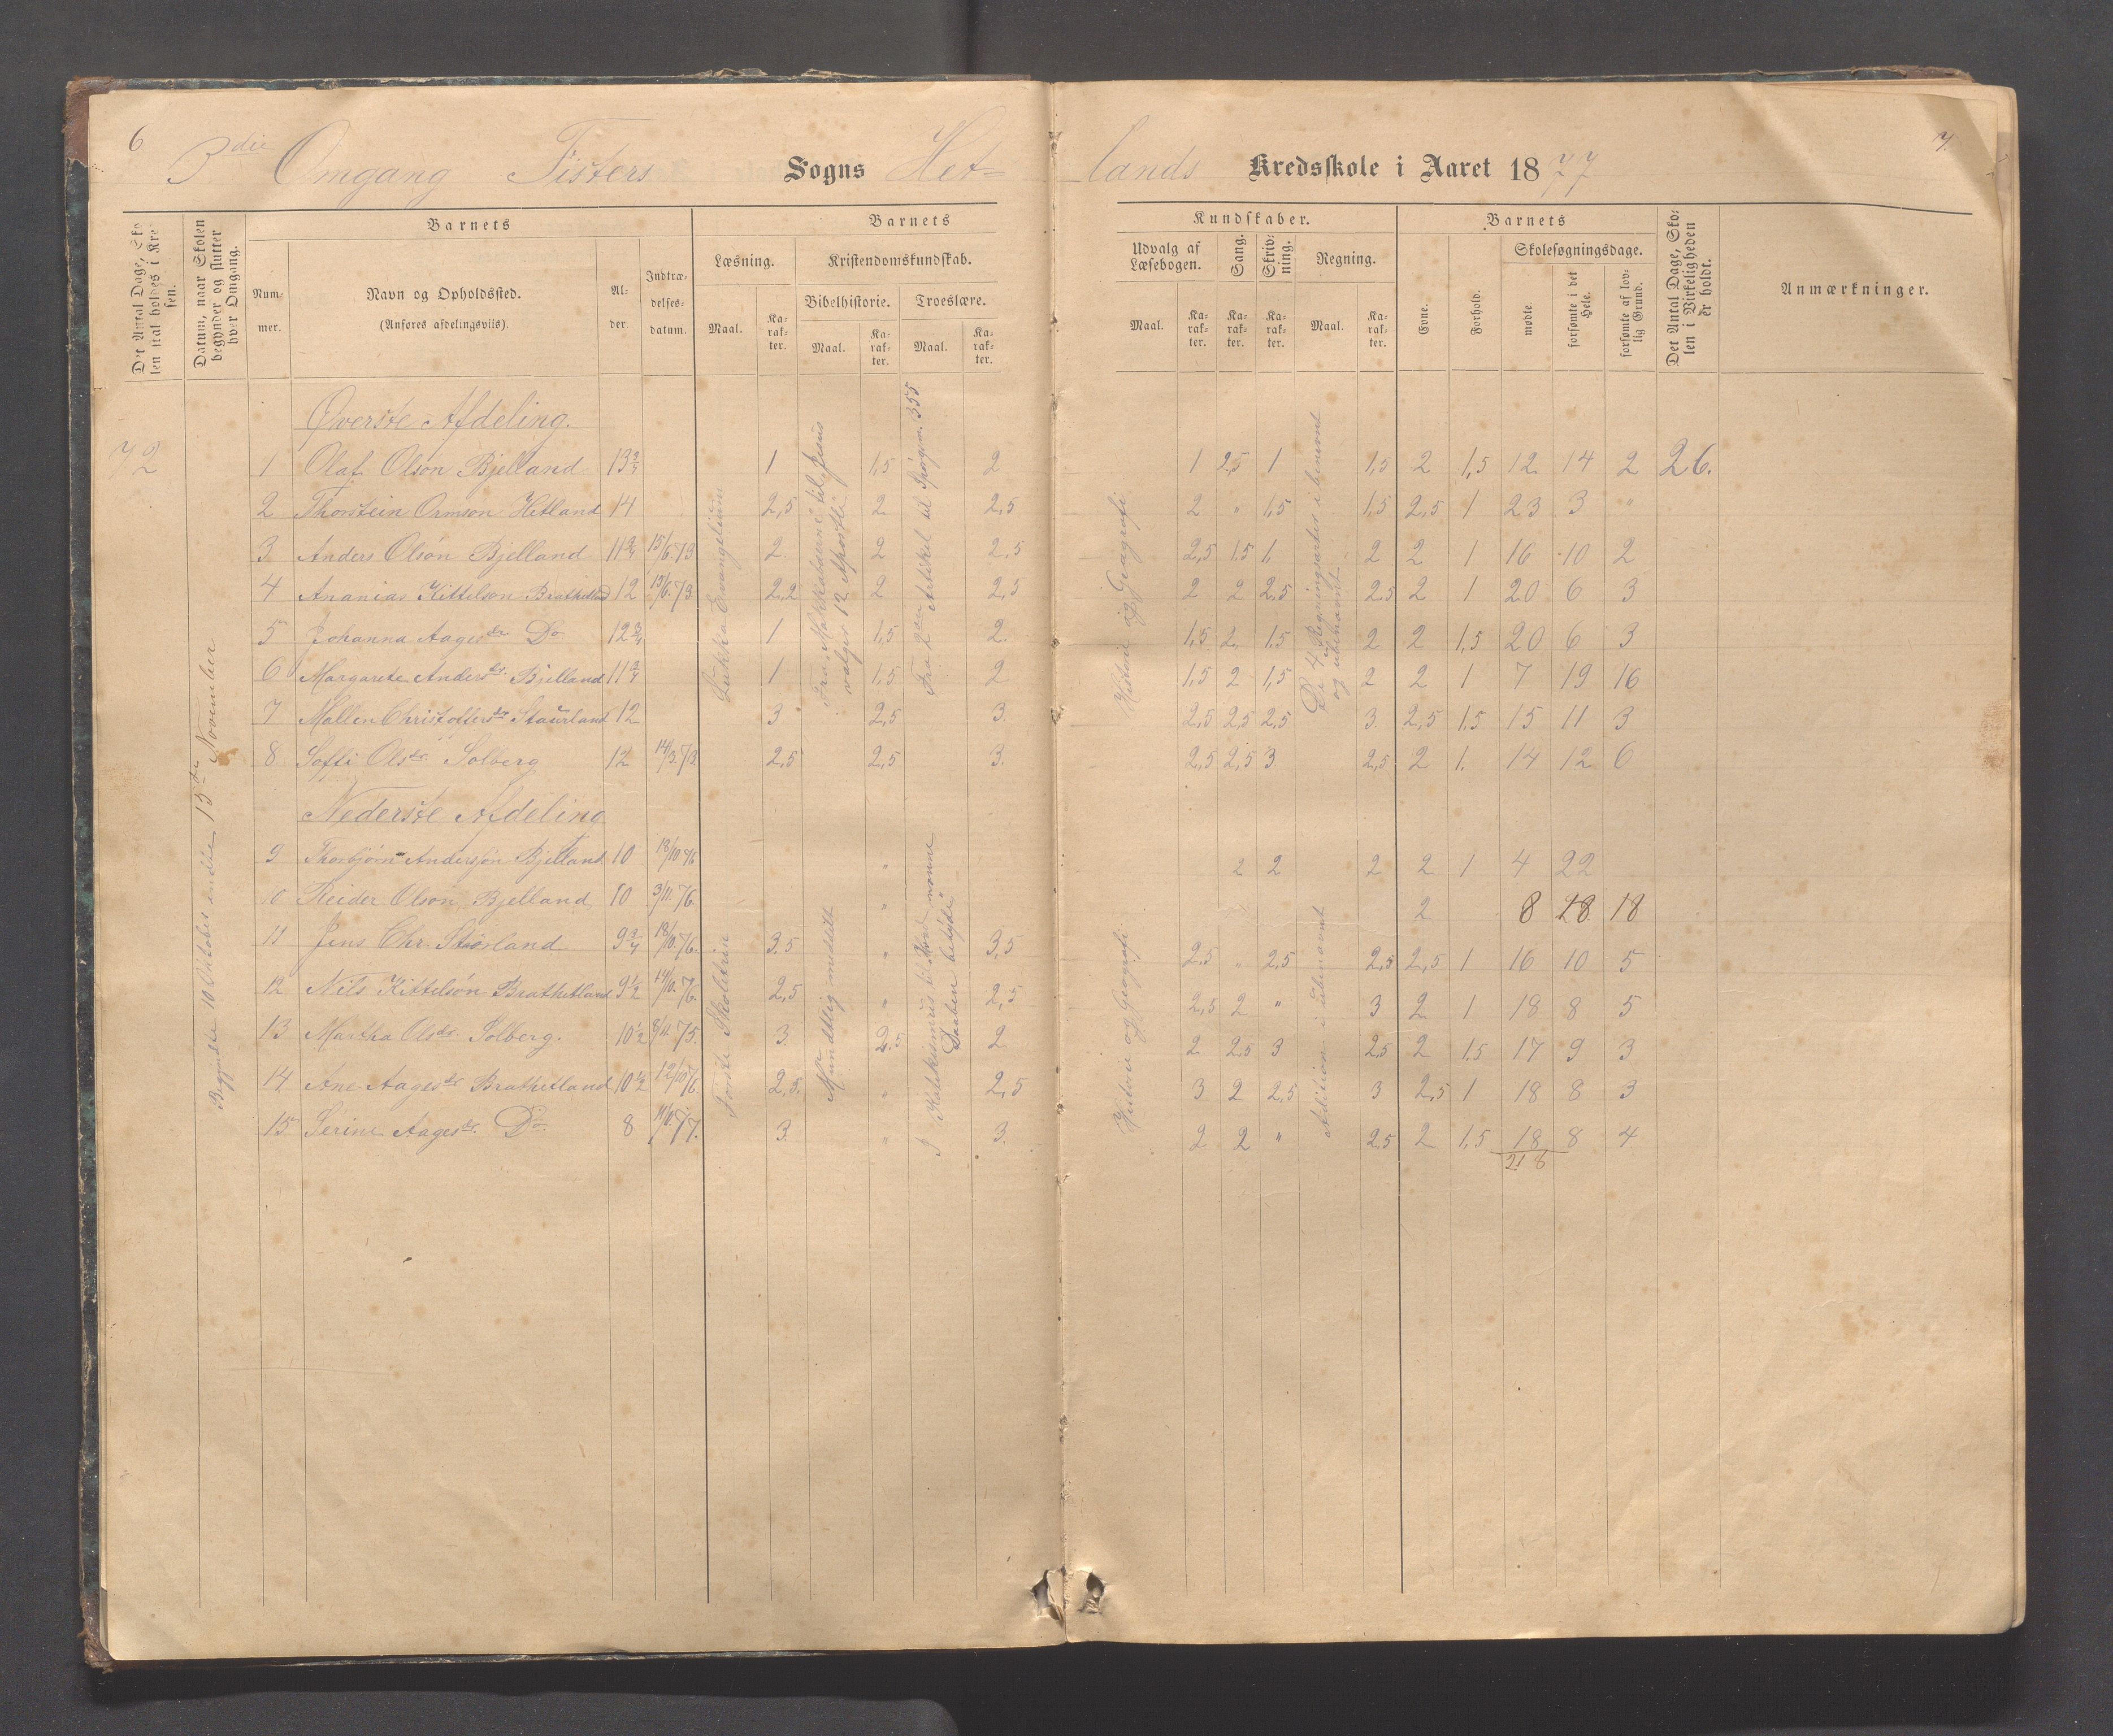 6
7.
3die Omgang Fisters Sogns Het= lands Kredsskole i Aaret 1877
Det Antal Dage, Skolen skal holdes i Kredsen.
Datum, naar Skolen begynder og slutter hver Omgang.
Barnets
Nummer.
Navn og Opholdssted.
(Anføres afdelingsviis).
Alder.
Indtrædelsesdatum.
Barnets
Læsning.
Maal.
Karakter.
Kristendomskundskab.
Bibelhistorie.
Maal.
Karakter.
Troeslære.
Maal.
Karakter.
Kundskaber.
Udvalg af Læsebogen.
Maal.
Karakter.
Sang.
Karakter.
Skrivning.
Karakter.
Regning.
Maal.
Karakter.
Barnets
Evne.
Forhold.
Skolesøgningsdage.
mødte.
forsømte i det Hele.
forsømte af lovlig Grund.
Det Antal Dage, Skolen i Virkeligheden er holdt.
Anmærkninger.
Begyndte 10 Oktober endte 13de November
Øverste Afdeling.
72 1 Olaf Olson Bjelland 13 3/4 1 1,5 2 1 2,5 1 1,5 2 1,5 12 14 2 26.
2 Thorstein Ormson Hetland 14 2,5 2 2,5 2 " 1,5 1,5 2,5 1 23 3 "
3 Anders Olson Bjelland 11 3/4 15/6 73 2 2 2,5 2,5 1,5 1 2 2 1 16 10 2
4 Ananias Kittelson Brathetld 12 15/6 73 2,2 2 2,5 2 2 2,5 2,5 2 1 20 6 3
5 Johanna Aagesdr Do 12 3/4 1 1,5 2. 1,5 2. 1,5 2 2 1,5 20 6 3
6 Margarete Andersdr. Bjelland 11 3/4 1 1,5 2 1,5 2 1,5 2 2 1 7 19 16
7 Mallin Christoffersdr Staurland 12 3 2,5 3. 2,5 2,5 2,5 3. 2,5 1,5 15 11 3
8 Soffi Olsdr. Solberg 12 14/3 73 2,5 2,5 3. 2,5 2,5 3 2,5 2 1. 14 12 6
Lukka Evangelium
Fra Makkabæerne til Jesus vælger 12 Apostle
Fra 2den Artikkel til Spørgm. 355
Historie og Geografi
De 4 Regningsarter i benevnt og ubenevnt
Nederste Afdeling
9 Thorbjørn Andersøn Bjelland 10 18/10 76 " 2 2 2 2 1 4 22
10 Reider Olson Bjelland 10 3/11 76 " 2 8 18 18
11 Jens Chr. Staurland 9 3/4 18/10 76 3,5 " 3,5 2,5 " 2,5 2,5 2,5 1 16 10 5
12 Nils Kittelsøn Brathetland 9 1/2 14/10 76. 2,5 " 2,5 2,5 2 " 3 2 1 18 8 5
13 Martha Olsdr. Solberg. 10 1/2 8/11 75. 3. 2,5 2 2 2,5 3 2,5 2 1,5 17 9 3
14 Ane Aagesdr Brathetland 10 1/2 12/10 76. 2,5. " 2,5 3 2 2,5 3 2,5 1 18 8 3
15 Serine Aagesdr. Do 8 11/10 77. 3. " 3. 2 2 " 2,5 2 1,5 18 8 4
218
Mundtlig meddelt
Historie og Geografi
Adition i ubenævnt